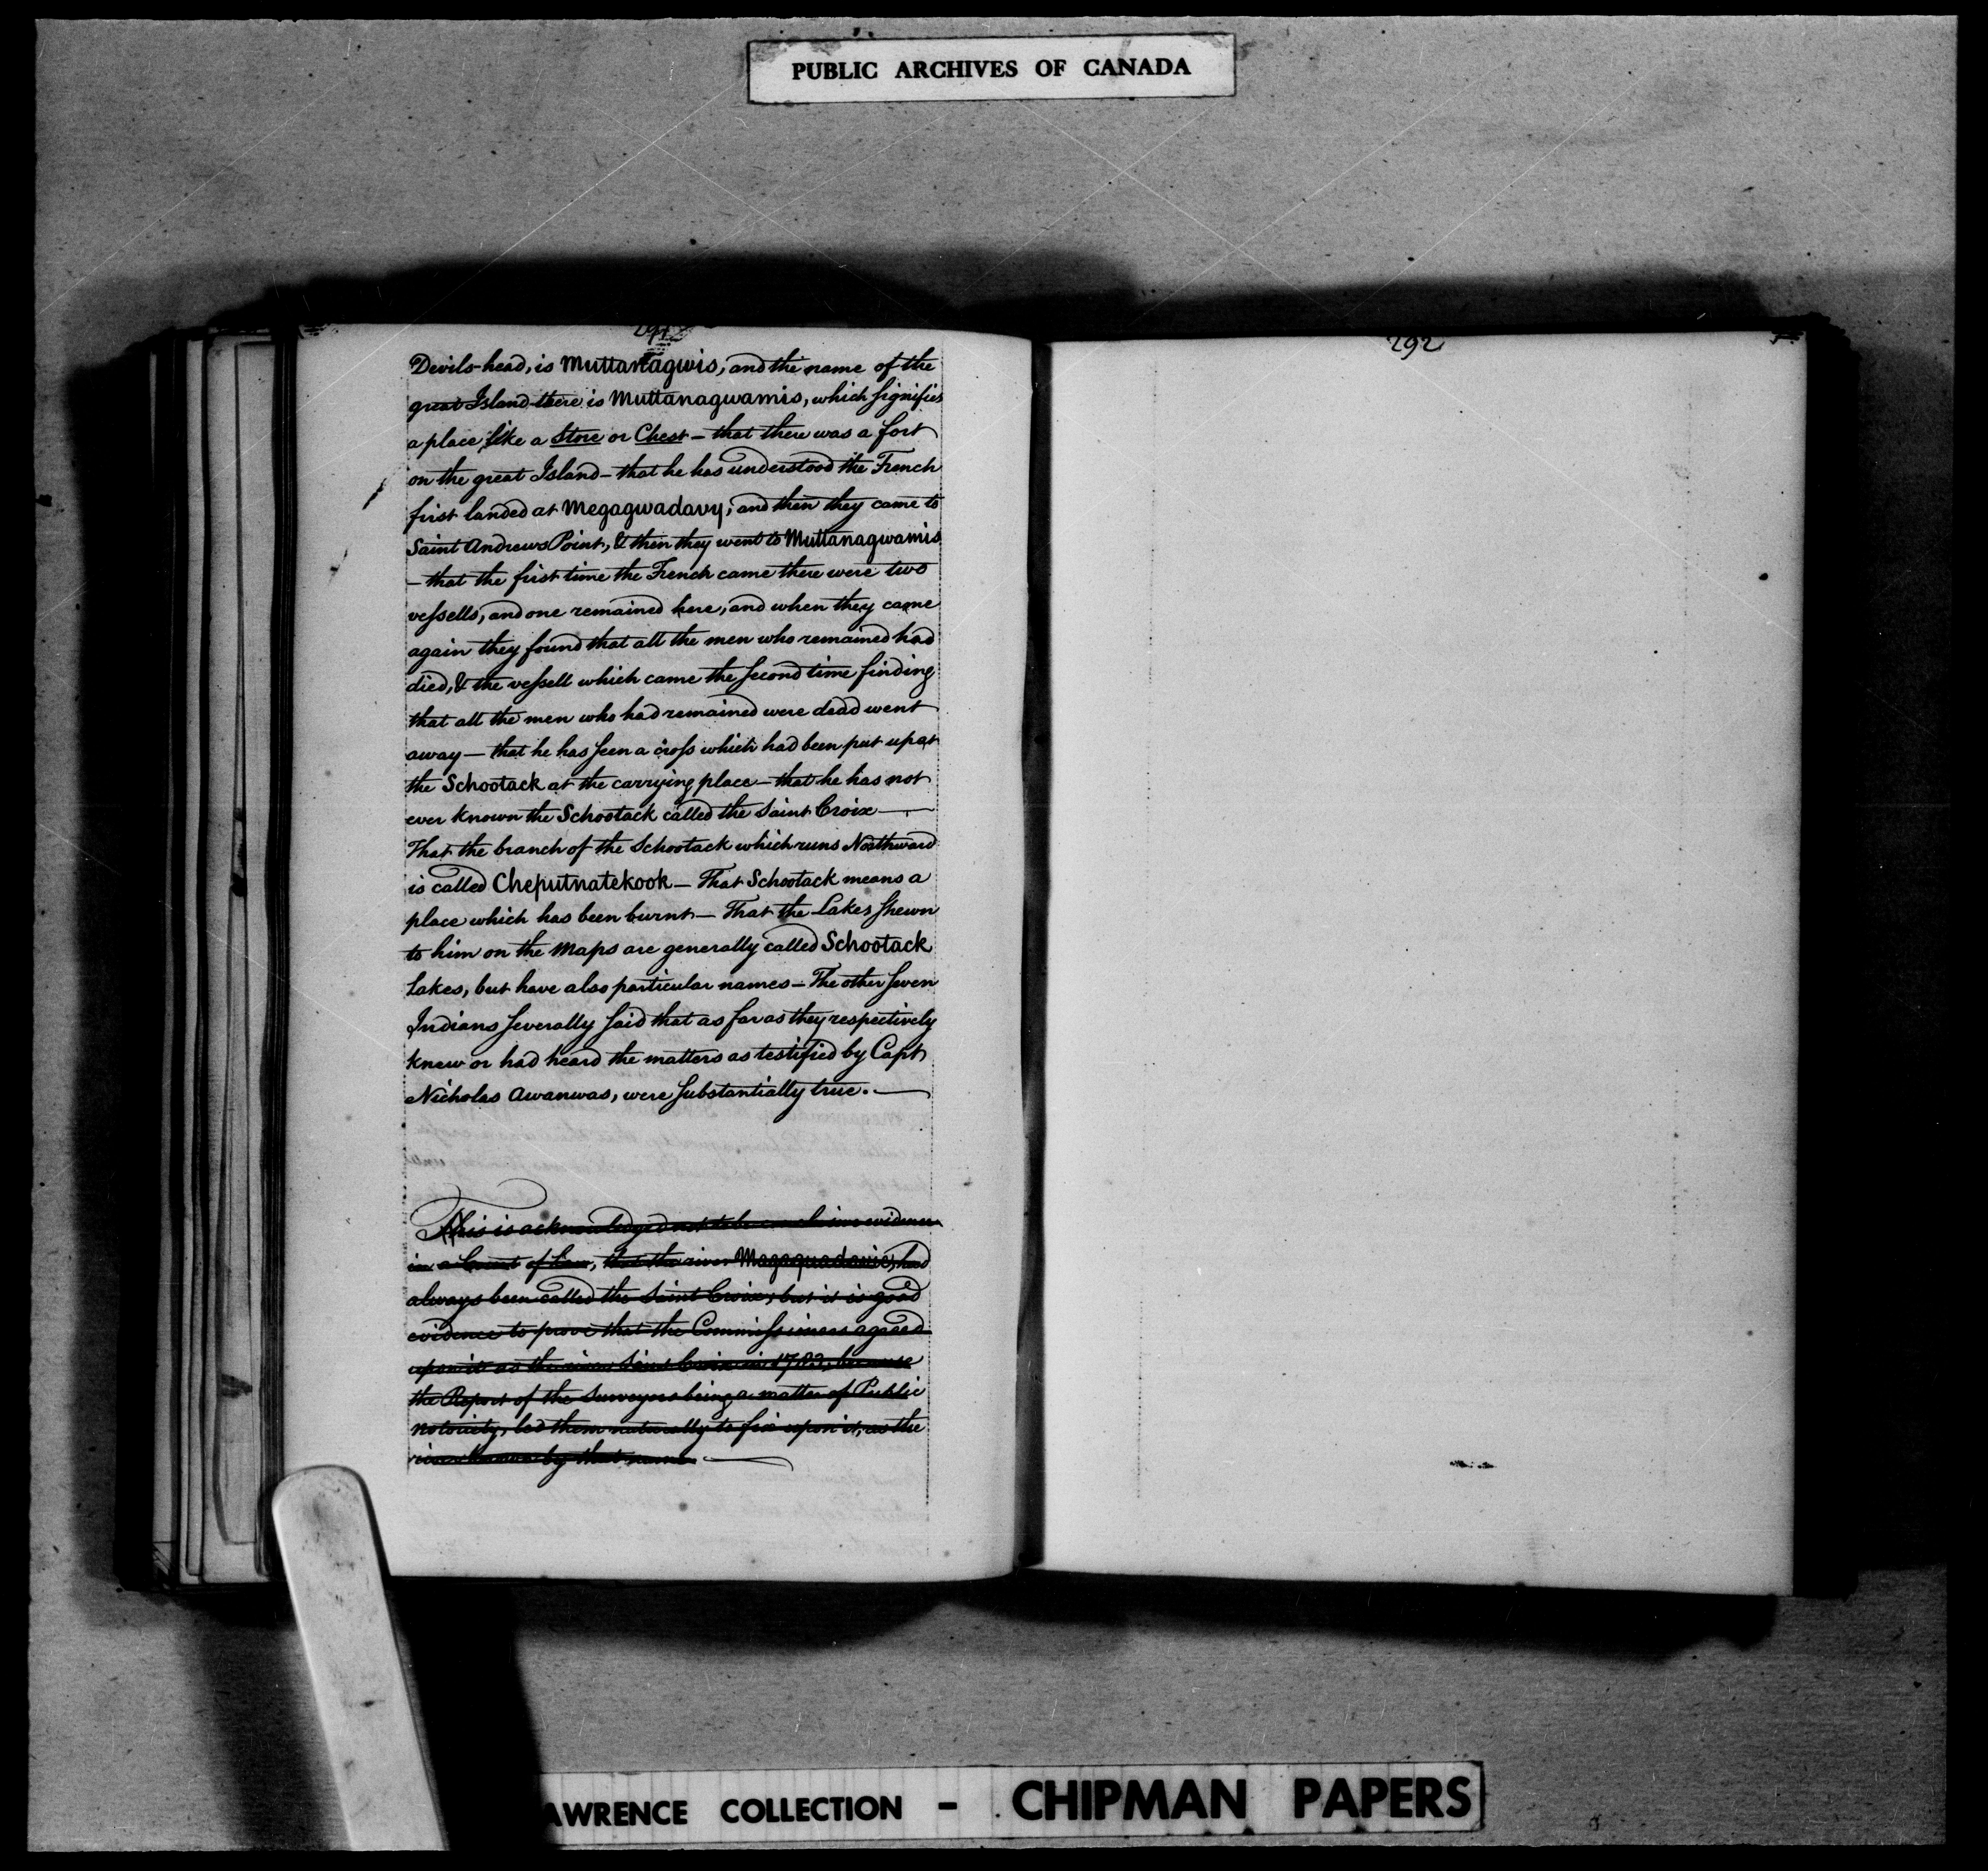 PUBLIC ARCHIVES OF CANADA
291
Devils-head, is Muttanagwis, and the name of the
great Island there is Muttanagwamis, which signifies
a place like a Store or Chest – that there was a fort
on the great Island – that he has understood the French
first landed at Megagwadavy, and then they came to
Saint Andrews Point, & then they went to Muttanagwamis
– that the first time the French came there were two
vessells, and one remained here, and when they came
again they found that all the men who remained had
died, & the vessell which came the second time finding
that all the men who had remained were dead went
away – that he has seen a cross which had been put up at
the Schootack at the carrying place – that he has not
ever known the Schootack called the Saint Croix —
That the branch of the Schootack which runs Northward
is called Cheputnatekook – That Schootack means a
place which has been burnt – That the Lakes shewn
to him on the Maps are generally called Schootack
Lakes, but have also particular names – The other seven
Indians severally said that as far as they respectively
knew or had heard the matters as testified by Capt
Nicholas Awanwas, were substantially true. —
This is acknowledged not to be conclusive evidence
in a Court of Law, that the river Magaquadavic, had
always been called the Saint Croix, but it is good
evidence to prove that the Commissioners agreed
upon it as the river Saint Croix in 1783, because
the Report of the Surveyors being a matter of Public
notoriety, led them naturally to fix upon it, as the
river known by that name —
292
AWRENCE COLLECTION - CHIPMAN PAPERS